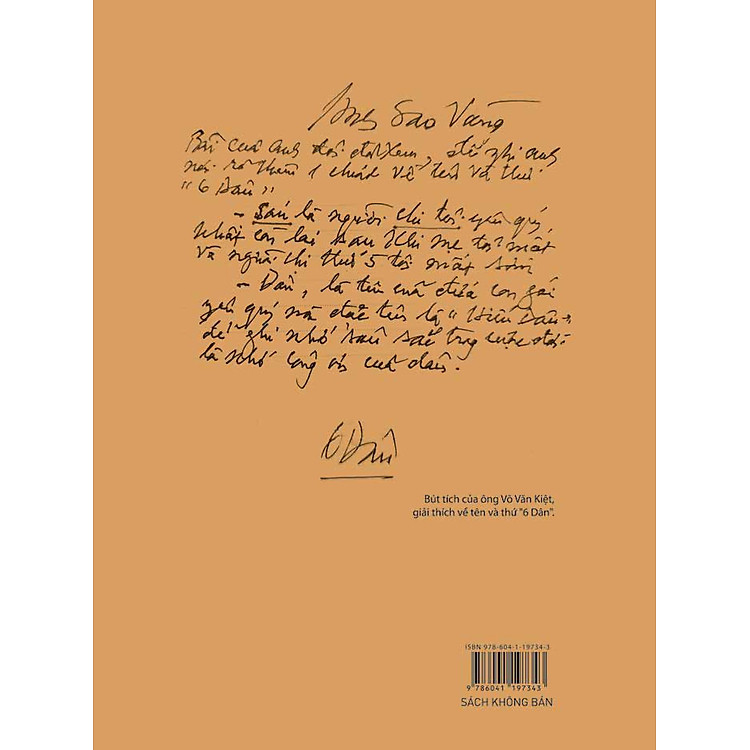 Anh Sao Vàng
Bài của anh tôi đã xem, đề nghị anh
nói rõ thêm 1 chút về tên và thứ
"6 Dân"
- Sáu là người chị tôi yêu quý
nhất còn lại sau khi mẹ tôi mất
và người chị thứ 5 tôi mất sớm
- Dân, là tên của đứa con gái
yêu quý mà đặt tên là "Hiếu Dân"
để ghi nhớ sâu sắc trong cuộc đời
là nhớ công ơn của dân.
6 Dân
Bút tích của ông Võ Văn Kiệt,
giải thích về tên và thứ "6 Dân".
ISBN 978-604-1-19734-3
9 786041 197343
SÁCH KHÔNG BÁN